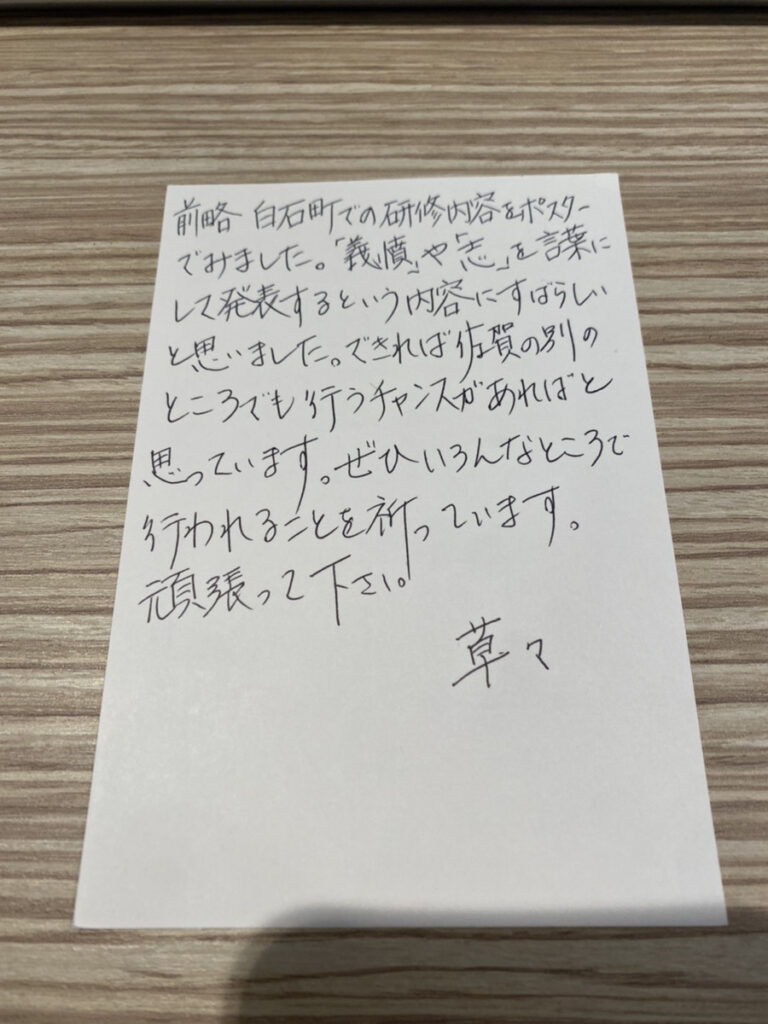 前略 白石町での研修内容をポスター
でみました。「義憤」や「志」を言葉に
して発表するという内容にすばらしい
と思いました。できれば佐賀の別の
ところでも行うチャンスがあればと
思っています。ぜひいろんなところで
行われることを祈っています。
頑張って下さい。
草々